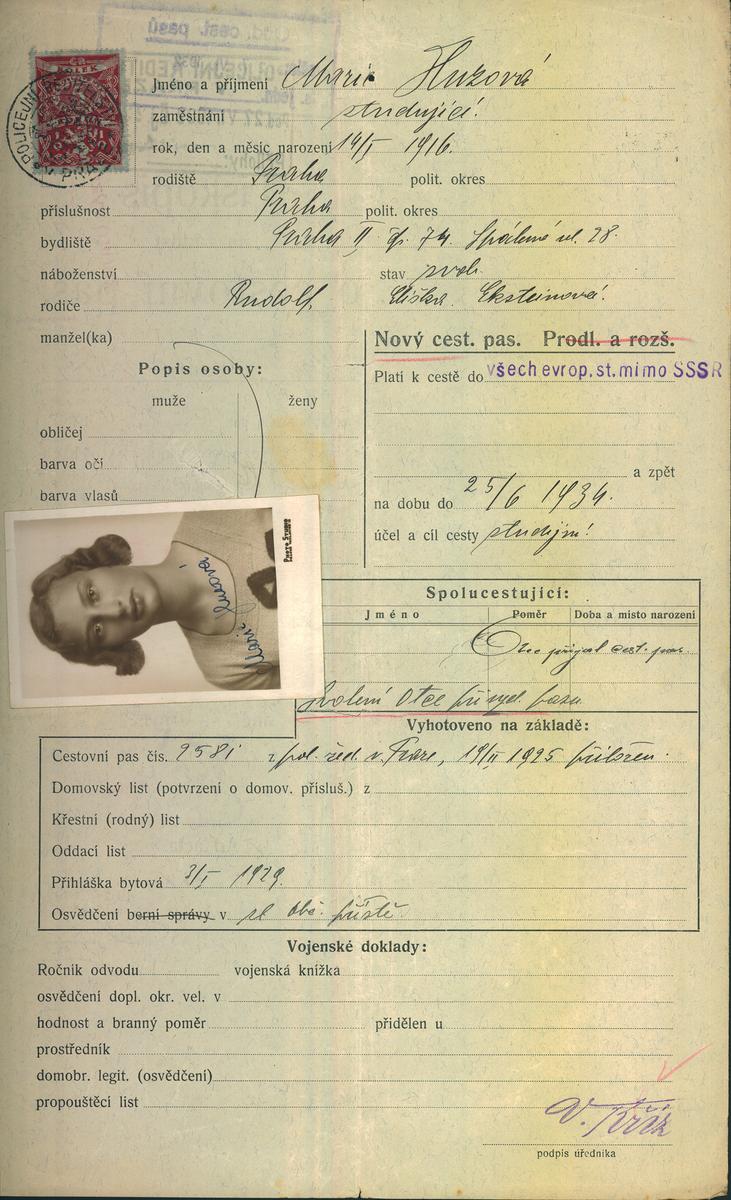 POLICEJNÍ
Jméno a příjmení Marie Huzová
zaměstnání studující
rok, den a měsíc narození 14/I 1916.
rodiště Praha polit. okres
příslušnost Praha polit. okres
bydliště Praha II čp. 74. Spálená ul. 28.
náboženství stav svob.
rodiče Rudolf, Eliška Eksteinová
manžel(ka)
Nový cest. pas. Prodl. a rozš.
Popis osoby:
Platí k cestě do všech evrop. st. mimo SSSR
muže ženy
obličej
barva očí
a zpět
barva vlasů
na dobu do 25/6 1934.
účel a cíl cesty studijní
Spolucestující:
Jméno Poměr Doba a místo narození
Otec přijal cest. pas.
Svolení otce při vyd. pasu
Vyhotoveno na základě:
Cestovní pas čís. 9581 z pol. řed. v Praze, 19/II 1925 přiložen.
Domovský list (potvrzení o domov. přísluš.) z
Křestní (rodný) list
Oddací list
Přihláška bytová 3/I 1929.
Osvědčení berní správy v
Vojenské doklady:
Ročník odvodu vojenská knížka
osvědčení dopl. okr. vel. v
hodnost a branný poměr přidělen u
prostředník
domobr. legit. (osvědčení)
propouštěcí list
V. Kříž
podpis úředníka